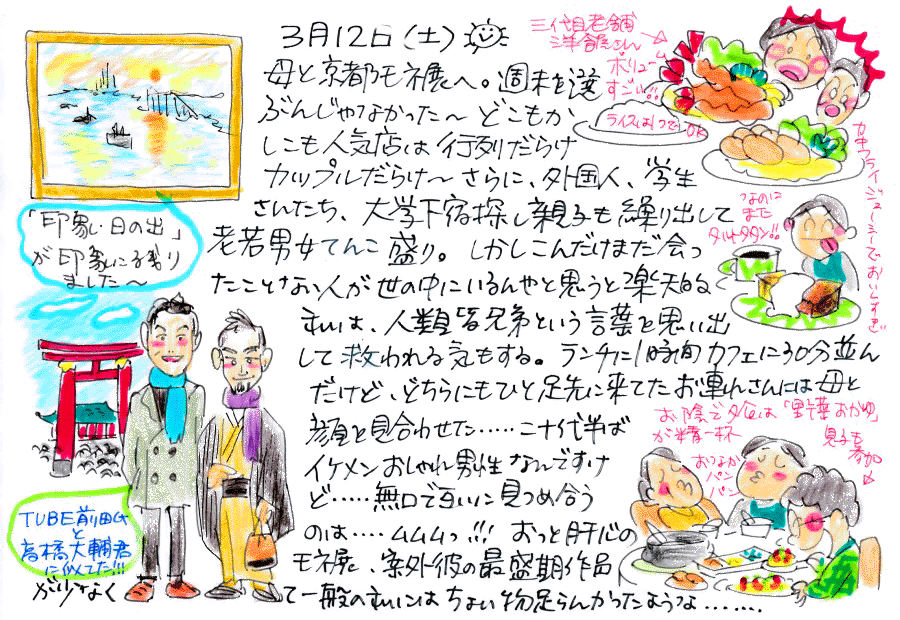 3月12日(土)
母と京都モネ展へ。週末を選
ぶんじゃなかった〜 どこもか
しこも人気店は行列だらけ
カップルだらけ〜さらに、外国人、学生
さんたち、大学下宿探し親子も繰り出して
老若男女てんこ盛り。しかしこんだけまだ会っ
たことはない人が世の中にいるんやと思うと楽天的な
私は、人類皆兄弟という言葉を思い出
して救われる気もする。ランチに1時間カフェに30分並ん
だけど、どちらにもひと足先に来てたお連れさんには母と
顔を見合わせた……二十代半ば
イケメンおしゃれ男性なんですけ
ど……無口で互いに見つめ合う
のは….ムムムっ!!! おっと肝心の
モネ展、案外彼の最盛期作品
が少なくて一般の私にはちょい物足らんかったような……..
「印象・日の出」
が印象に残り
ました〜
TUBE前田氏
と
高橋大輔君
に似てた!!!
三代目老舗
洋食屋さん
ボリューム
すごい!!
ライスは1つでOK
カキフライジューシーでおいしすぎ
なのに
また
タルトタタン!!
お陰で夕食は「野菜おかゆ」
が精一杯
おなかが
パン
パン
息子も
参加